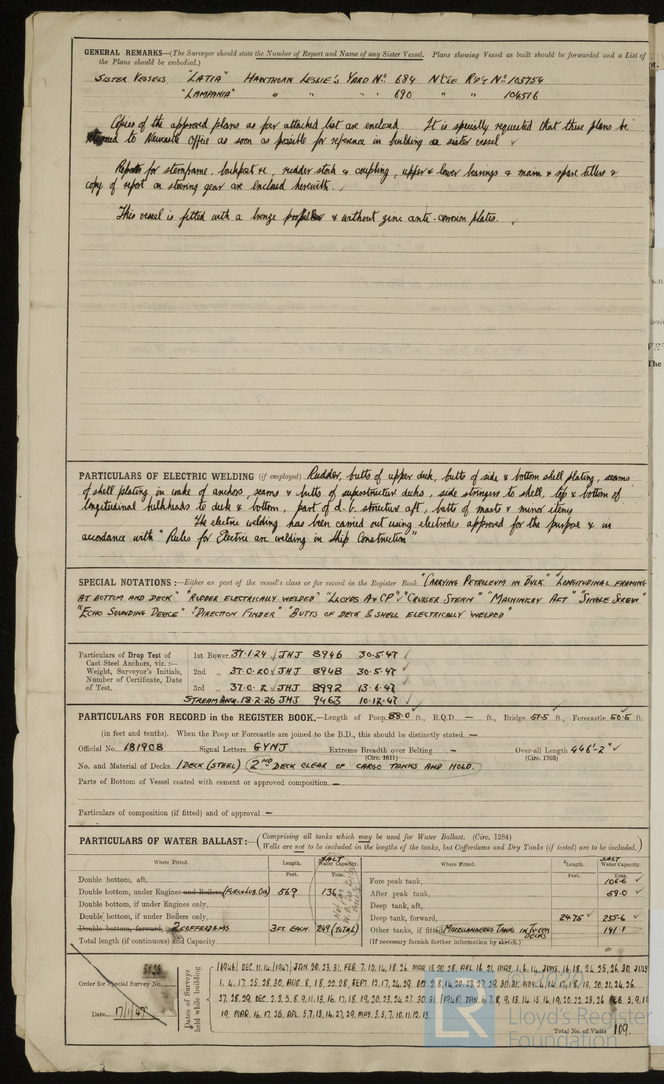 GENERAL REMARKS—(The Surveyor should state the Number of Report and Name of any Sister Vessel. Plans showing Vessel as built should be forwarded and a List of
the Plans should be embodied.)
SISTER VESSELS "LATIA" HAWTHORN LESLIE'S YARD No. 684 N'CLE RPT No. 103754
"LAMPANIA" " " " 690 " " 104516
Copies of the approved plans as per attached list are enclosed. It is specially requested that these plans be
returned to Newcastle Office as soon as possible for reference in building a sister vessel
Reports for sternframe, backpost &c, rudder stock & coupling, upper & lower bearings & main & spare tillers &
copy of report on steering gear are enclosed herewith.
This vessel is fitted with a bronze propeller & without zinc anti-corrosion plates.
PARTICULARS OF ELECTRIC WELDING (if employed) Rudder, butts of upper deck, butts of side & bottom shell plating, seams
of shell plating in wake of anchors, seams & butts of superstructure decks, side stringers to shell, top & bottom of
longitudinal bulkheads to deck & bottom, part of d.b. structure aft, butts of masts & minor items
The electric welding has been carried out using electrodes approved for the purpose & in
accordance with "Rules for Electric arc welding in Ship Construction"
SPECIAL NOTATIONS:—Either as part of the vessel's class or for record in the Register Book "CARRYING PETROLEUM IN BULK" "LONGITUDINAL FRAMING
AT BOTTOM AND DECK" "RUDDER ELECTRICALLY WELDED" "LLOYDS A & CP" "CRUISER STERN" "MACHINERY AFT" "SINGLE SCREW"
"ECHO SOUNDING DEVICE" "DIRECTION FINDER" "BUTTS OF DECK & SHELL ELECTRICALLY WELDED"
Particulars of Drop Test of
Cast Steel Anchors, viz.:—
Weight, Surveyor's Initials,
Number of Certificate, Date
of Test.
1st Bower 37.1.24 JHJ 8946 30.5.47
2nd " 37.0.20 JHJ 8948 30.5.47
3rd " 37.0.2 JHJ 8992 13.6.47
STREAM ANCR. 13.2.26 JHJ 9463 10.12.47
PARTICULARS FOR RECORD in the REGISTER BOOK.—Length of Poop 88.0 ft., R.Q.D. — ft., Bridge 51.5 ft., Forecastle 50.5 ft.
(in feet and tenths). When the Poop or Forecastle are joined to the B.D., this should be distinctly stated. —
Official No. 181908 Signal Letters GYNJ Extreme Breadth over Belting — Over-all Length 446'-2"
(Circ. 1611) (Circ. 1703)
No. and Material of Decks 1 DECK (STEEL) (2ND DECK CLEAR OF CARGO TANKS AND HOLD.
Parts of Bottom of Vessel coated with cement or approved composition —
Particulars of composition (if fitted) and of approval —
PARTICULARS OF WATER BALLAST:—(Comprising all tanks which may be used for Water Ballast. (Circ. 1284)
Wells are not to be included in the lengths of the tanks, but Cofferdams and Dry Tanks (if tested) are to be included.)
Where Fitted. Length. SALT Water Capacity. Where Fitted. Length. SALT Water Capacity.
Feet. Tons. Feet. Tons.
Double bottom, aft, Fore peak tank, 106.6
Double bottom, under Engines and Boilers, 56.9 136 After peak tank, 59.0
Double bottom, if under Engines only, Deep tank, aft,
Double bottom, if under Boilers only, Deep tank, forward, 24.75 255.6
Double bottom, forward, 2 COFFERDAMS 3FT EACH 249 (TOTAL) Other tanks, if fitted (MISCELLANEOUS TANKS IN TWEEN DECKS 141.1
Total length (if continuous) and Capacity (If necessary furnish further information by sketch.)
Order for Special Survey No. 5838
Date 17/1/47
Dates of Surveys held while building
Total No. of Visits 109.
© 2020
LR
Lloyd's Register
Foundation